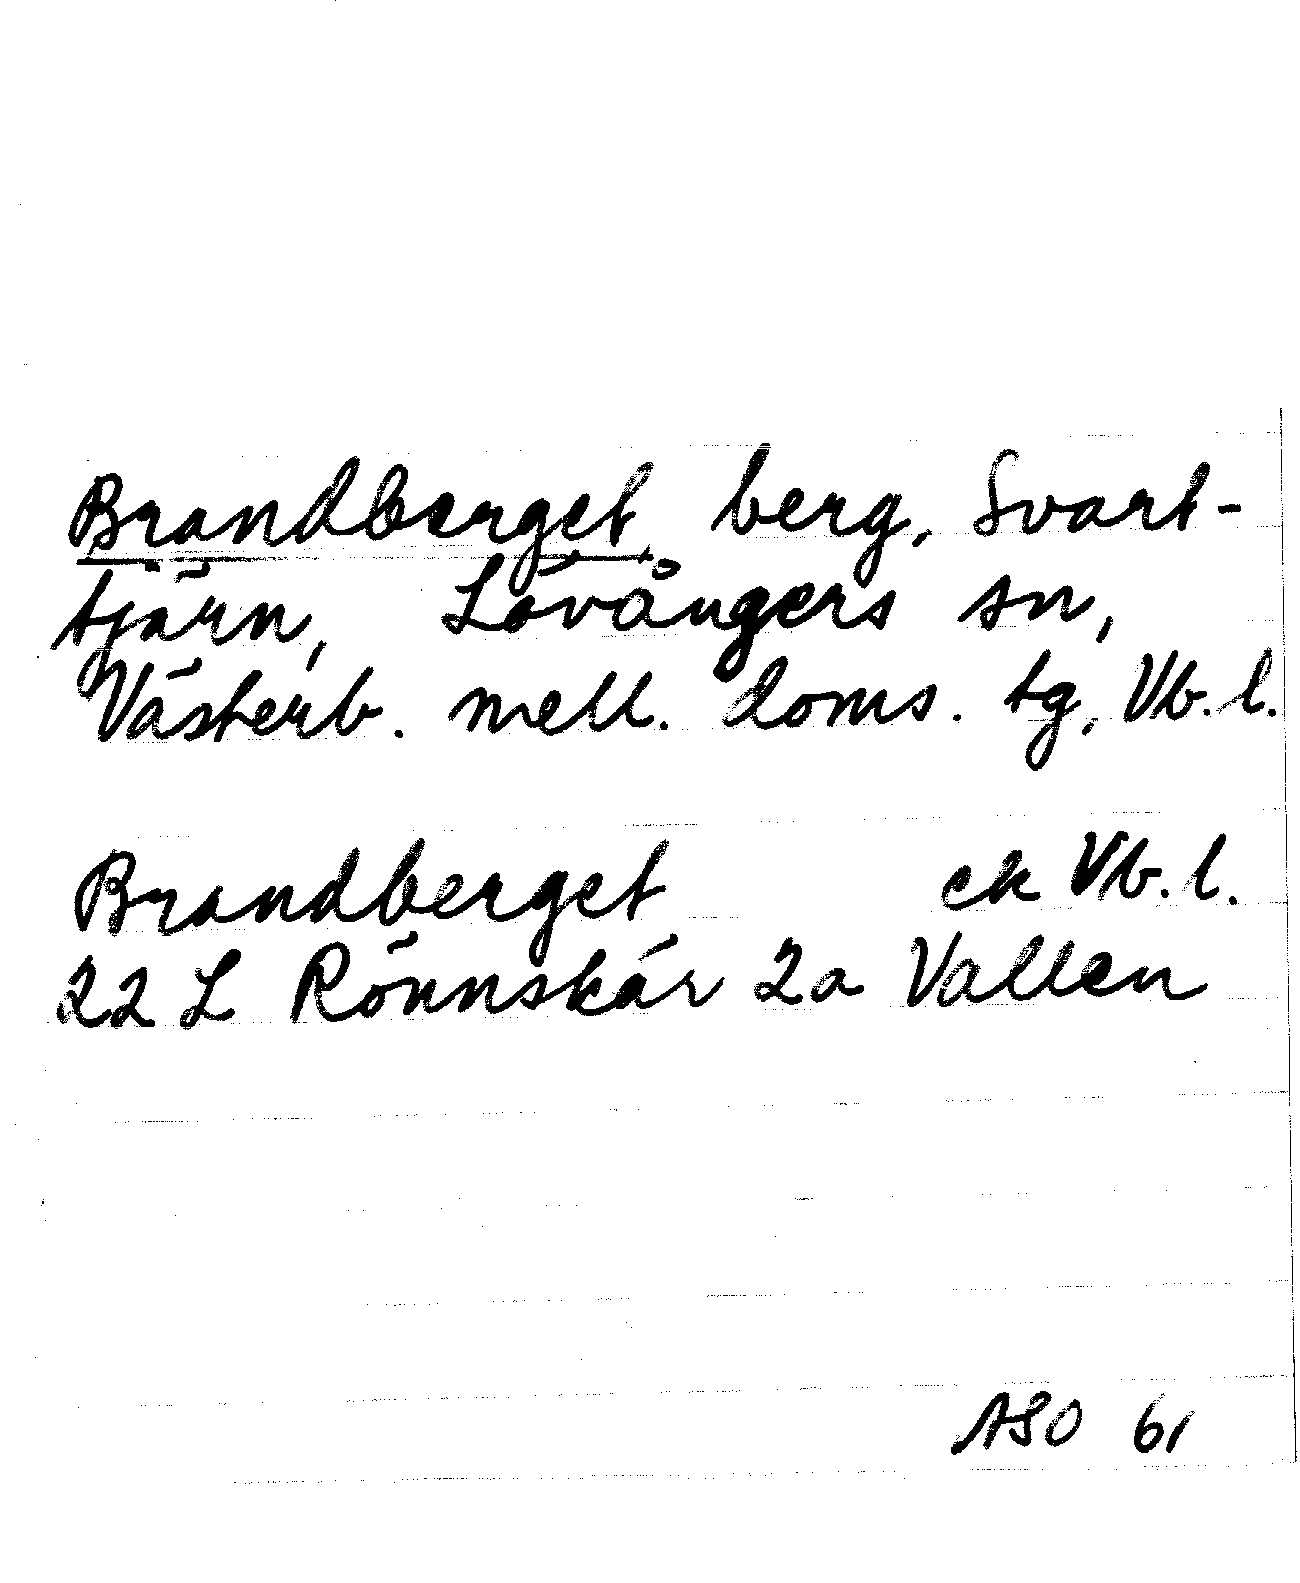 Brandberget berg, Svart-
tjärn, Lövångers sn,
Västerb. mell. doms. tg, Vb. l.
Brandberget ek Vb. l.
22 L Rönnskär 2a Vallen
ASO 61